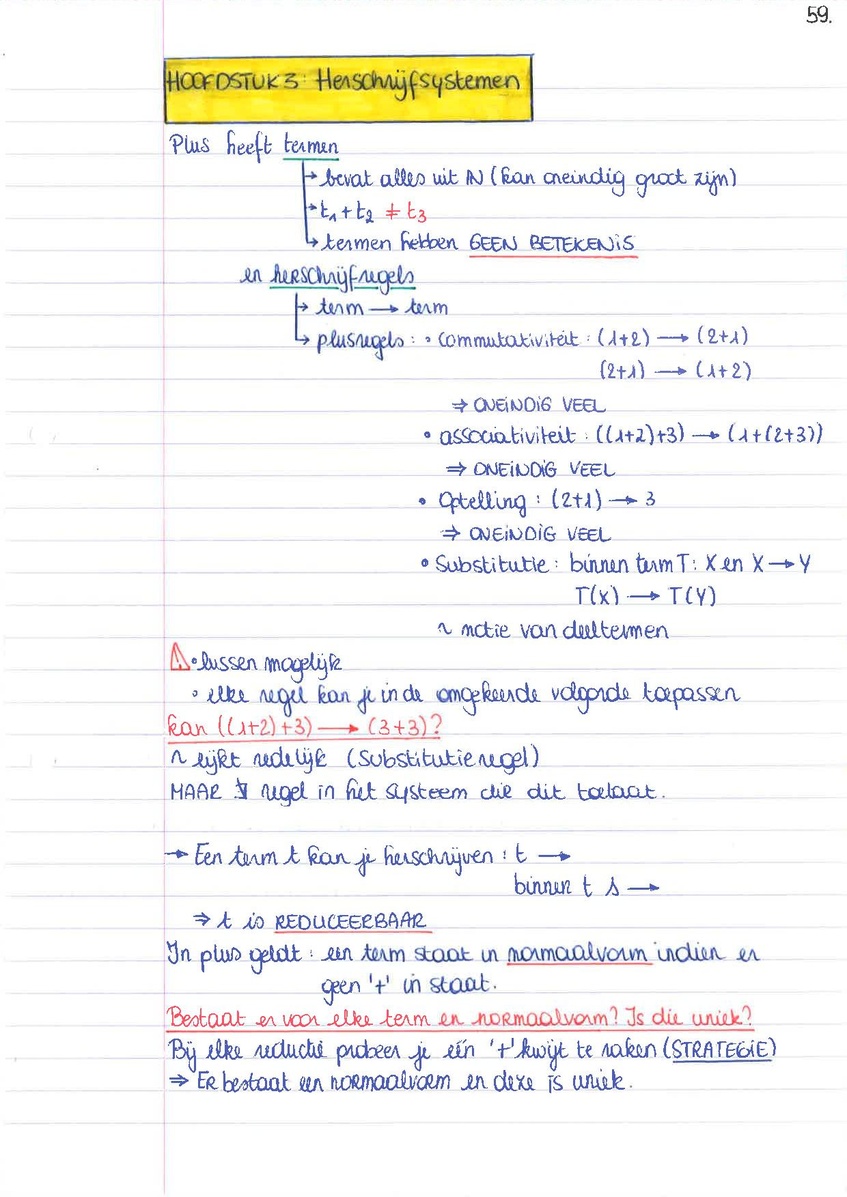 59.
HOOFDSTUK 3: Herschrijfsystemen
Plus heeft termen
↳ bevat alles uit ℕ (kan oneindig groot zijn)
↳ t₁ + t₂ ≠ t₃
↳ termen hebben GEEN BETEKENIS
en herschrijfregels
↳ term → term
↳ plusregels: • commutativiteit: (1+2) → (2+1)
(2+1) → (1+2)
⇒ ONEINDIG VEEL
• associativiteit: ((1+2)+3) → (1+(2+3))
⇒ ONEINDIG VEEL
• Optelling: (2+1) → 3
⇒ ONEINDIG VEEL
• Substitutie: binnen term T: X en X → Y
T(X) → T(Y)
~ notie van deeltermen
⚠ • lussen mogelijk
• elke regel kan je in de omgekeerde volgorde toepassen
kan ((1+2)+3) → (3+3)?
~ lijkt redelijk (substitutieregel)
MAAR ∄ regel in het systeem die dit toelaat.
→ Een term t kan je herschrijven: t →
binnen t s →
⇒ t is REDUCEERBAAR
In plus geldt: een term staat in normaalvorm indien er
geen '+' in staat.
Bestaat er voor elke term en normaalvorm? Is die uniek?
Bij elke reductie probeer je één '+' kwijt te raken (STRATEGIE)
⇒ Er bestaat een normaalvorm en deze is uniek.